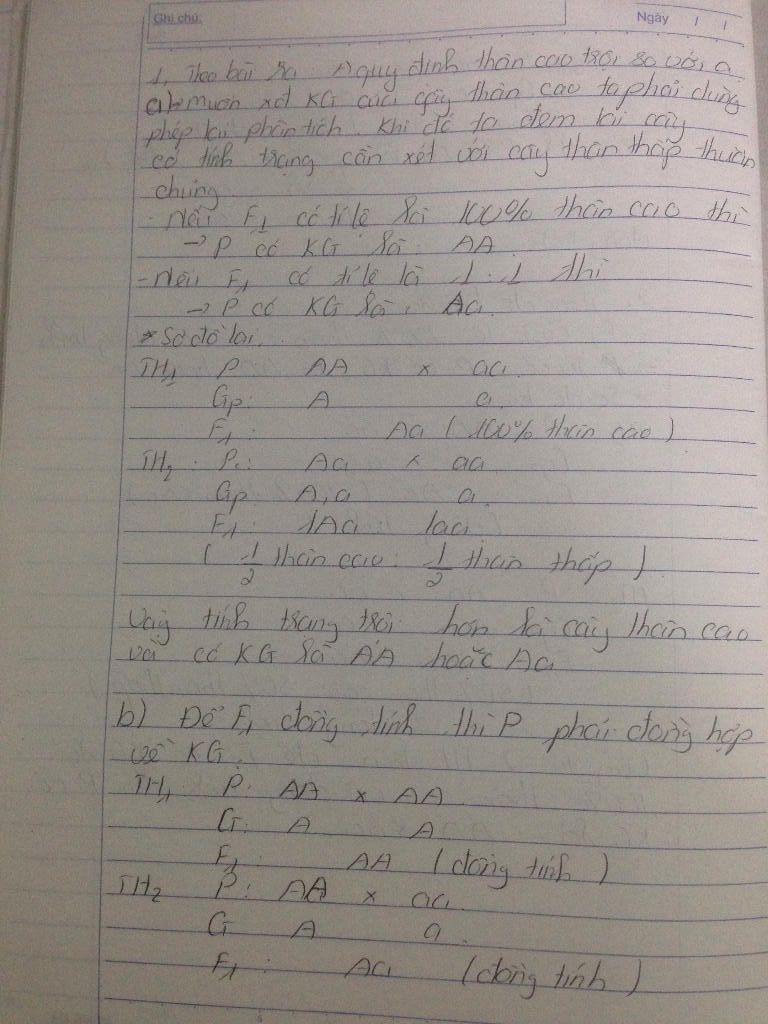 Ghi chú:
Ngày / /
1, Theo bài ra A quy định thân cao trội so với a.
a) muốn xét KG của cây thân cao ta phải dùng
phép lai phân tích. Khi đó ta đem lai cây
có tính trạng cần xét với cây thân thấp thuần
chủng
- Nếu F1 có tỉ lệ là 100% thân cao thì
→ P có KG là: AA
- Nếu F1 có tỉ lệ là 1:1 thì
→ P có KG là: Aa.
* Sơ đồ lai.
TH1 P AA × aa.
Gp: A a
F1: Aa (100% thân cao)
TH2 P: Aa × aa
Gp A, a a
F1: 1Aa 1aa
( 1/2 thân cao: 1/2 thân thấp )
Vậy tính trạng trội hơn là cây thân cao
và có KG là AA hoặc Aa
b) Để F1 đồng tính thì P phải đồng hợp
về KG.
TH1 P: AA × AA
G: A A
F1: AA (đồng tính)
TH2 P: AA × aa
G A a.
F1: Aa (đồng tính)